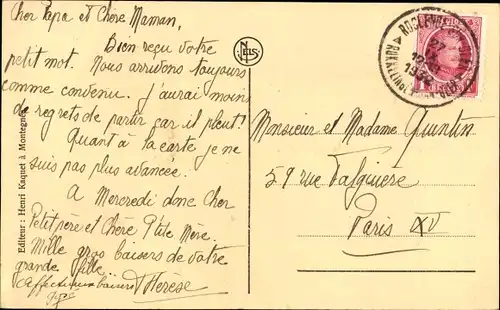 Cher Papa et Chère Maman,
Bien reçu votre
petit mot. Nous arrivons toujours
comme convenu. J'aurai moins
de regrets de partir car il pleut!
Quant à la carte je ne
suis pas plus avancée.
A Mercredi donc Cher
Petit père et Chère P'tite Mère.
Mille gros baisers de votre
grande fille
Thérèse
Affectueux baisers
Editeur: Henri Kaquet à Montegnée
NELS
Monsieur et Madame Quintin
59 rue Falguière
Paris XV